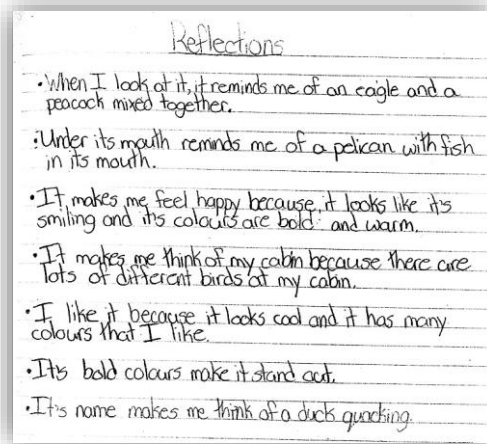 Reflections
•When I look at it, it reminds me of an eagle and a
peacock mixed together.
•Under its mouth reminds me of a pelican with fish
in its mouth.
•It makes me feel happy because it looks like it's
smiling and its colours are bold and warm.
•It makes me think of my cabin because there are
lots of different birds at my cabin.
•I like it because it looks cool and it has many
colours that I like.
•It's bold colours make it stand out.
•It's name makes me think of a duck quacking.